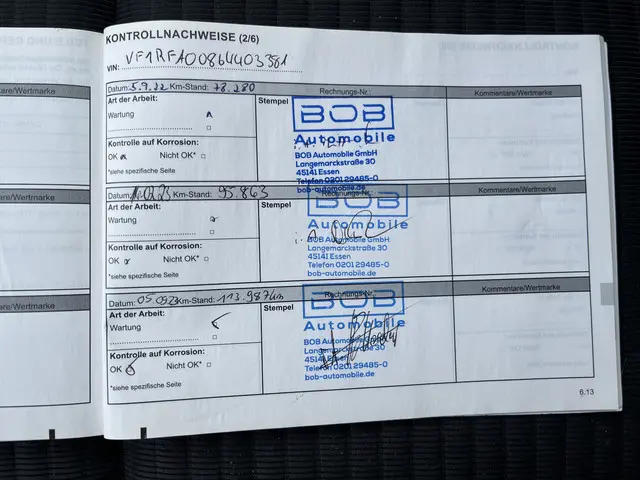 KONTROLLNACHWEISE (2/6)
VIN: VF1RFA00864403381
Datum: 5.9.22 Km-Stand: 78.280 Rechnungs-Nr.: Kommentare/Wertmarke
Art der Arbeit: Stempel
Wartung
Kontrolle auf Korrosion:
OK Nicht OK*
*siehe spezifische Seite
BOB
Automobile
BOB Automobile GmbH
Langemarckstraße 30
45141 Essen
Telefon 0201 29485-0
bob-automobile.de
Datum: Km-Stand: 95.863 Rechnungs-Nr.: Kommentare/Wertmarke
Art der Arbeit: Stempel
Wartung
Kontrolle auf Korrosion:
OK Nicht OK*
*siehe spezifische Seite
BOB
Automobile
BOB Automobile GmbH
Langemarckstraße 30
45141 Essen
Telefon 0201 29485-0
bob-automobile.de
Datum: Km-Stand: 113.987km Rechnungs-Nr.: Kommentare/Wertmarke
Art der Arbeit: Stempel
Wartung
Kontrolle auf Korrosion:
OK Nicht OK*
*siehe spezifische Seite
BOB
Automobile
BOB Automobile GmbH
Langemarckstraße 30
45141 Essen
Telefon 0201 29485-0
bob-automobile.de
6.13
entare/Wertmarke
entare/Wertmarke
entare/Wertmarke